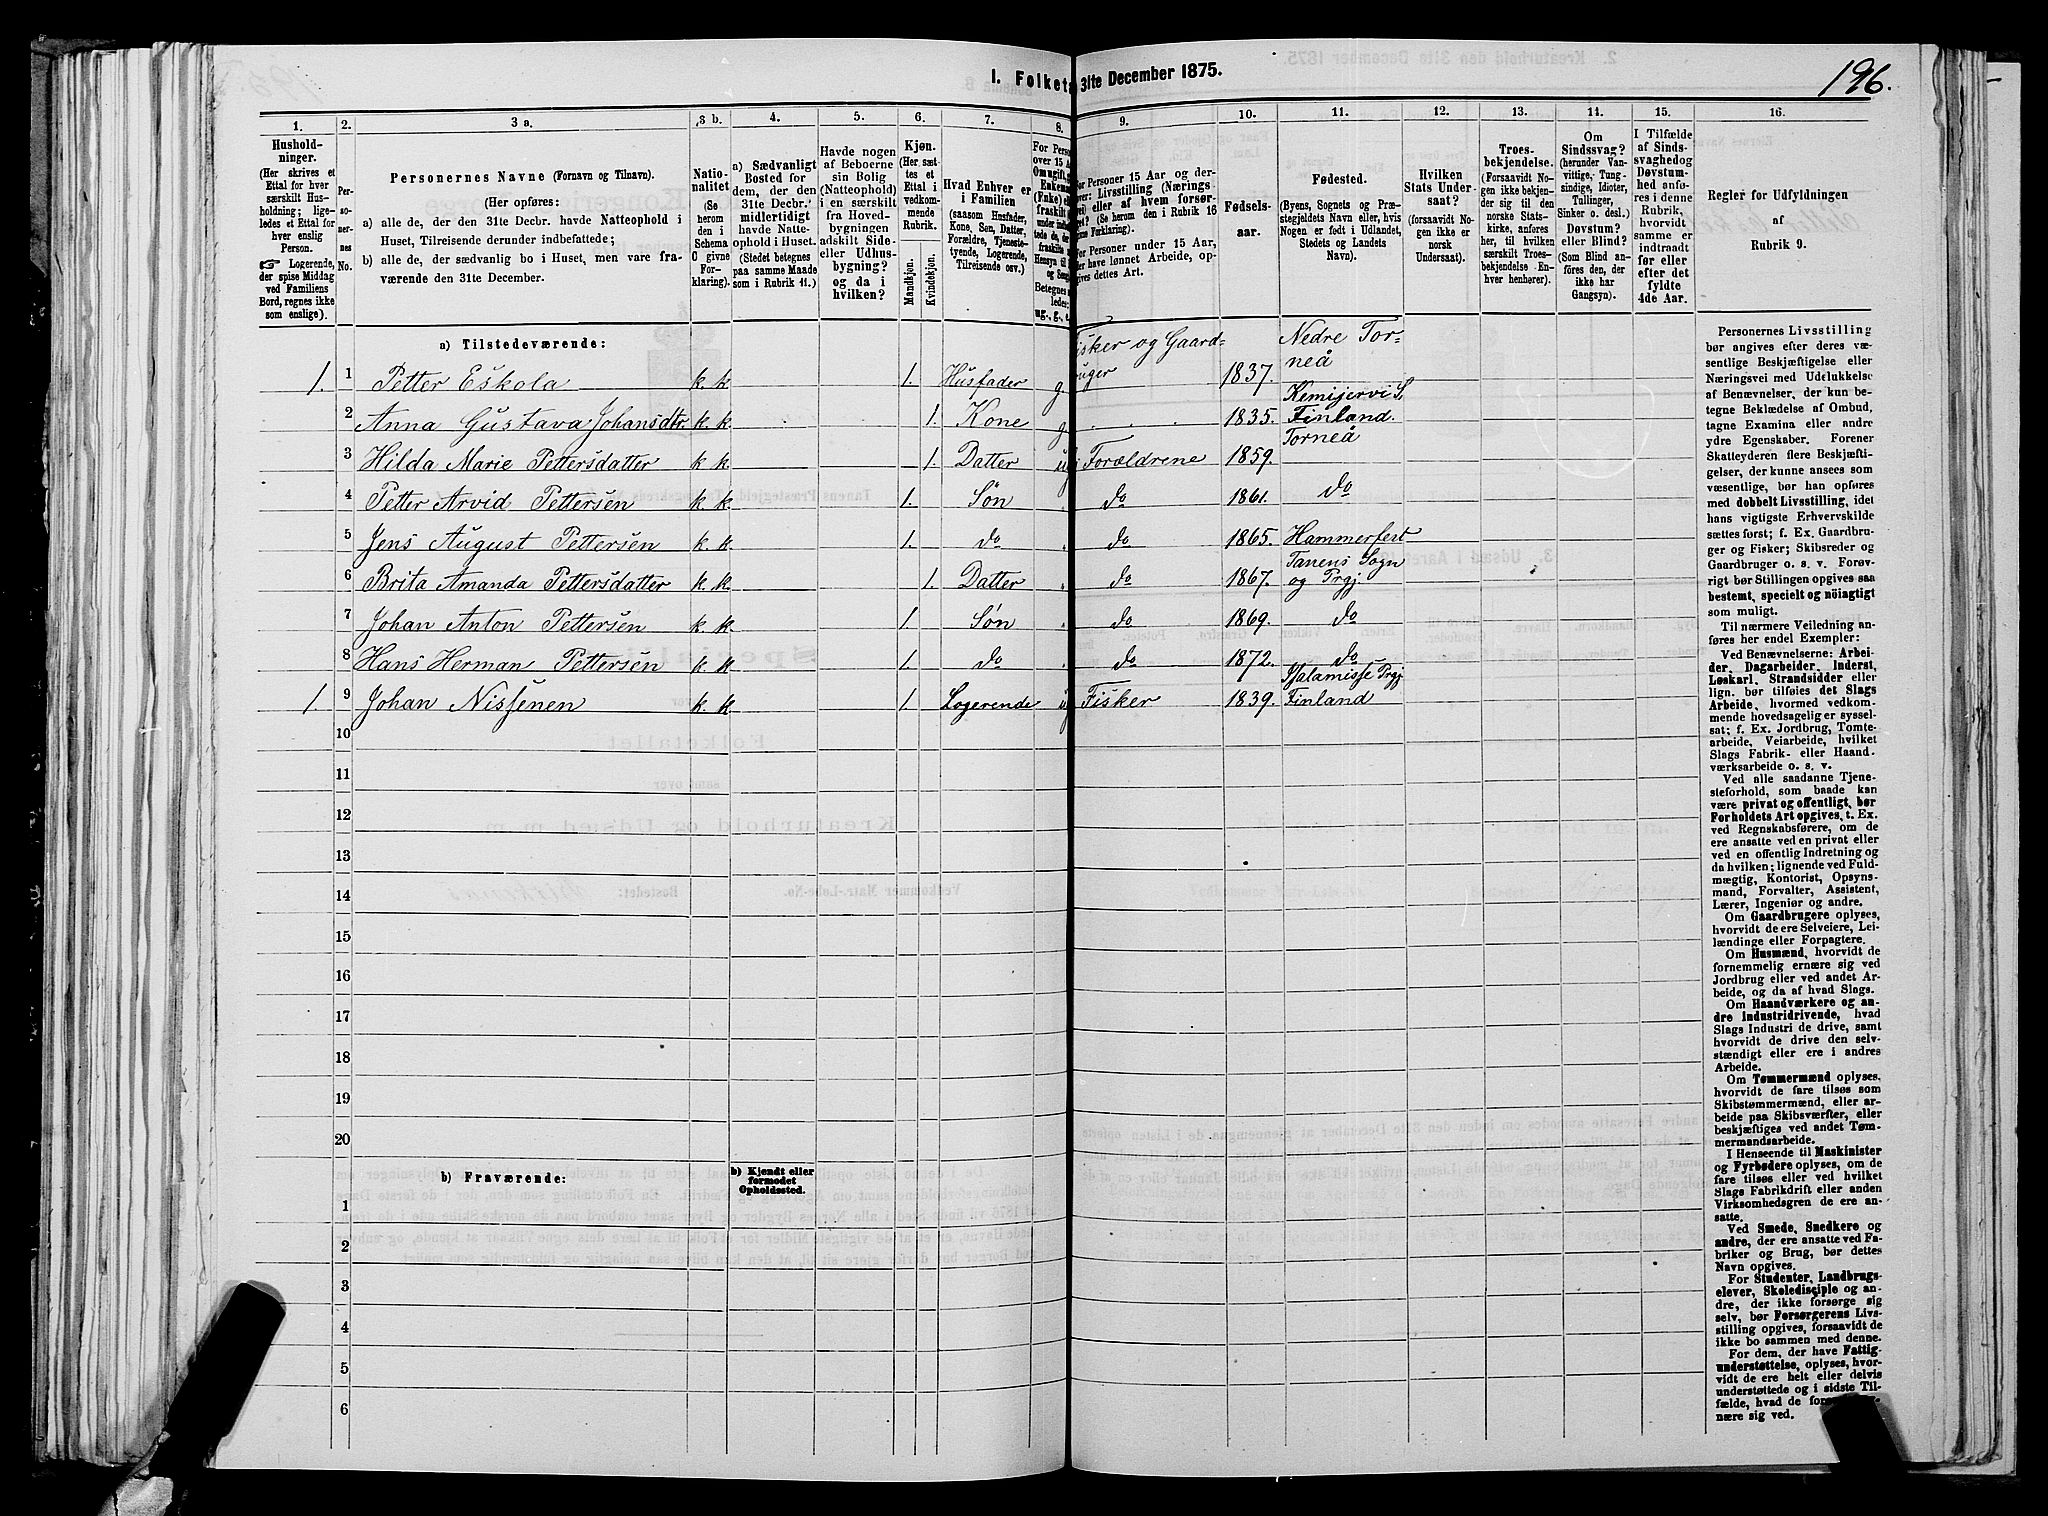 I. Folketa 31te December 1875.
196.
1.
Hushold-
ninger.
(Her skrives et
Ettal for hver
særskilt Hus-
holdning; lige-
ledes et Ettal for
hver enslig
Person.
☞ Logerende,
der spise Middag
ved Familiens
Bord, regnes ikke
som enslige).
2.
Per-
so-
ner-
nes
No.
3 a.
Personernes Navne (Fornavn og Tilnavn).
(Her opføres:
a) alle de, der den 31te Decbr. havde Natteophold i
Huset, Tilreisende derunder indbefattede;
b) alle de, der sædvanlig bo i Huset, men vare fra-
værende den 31te December.
3 b.
Natio-
nalitet
(Se
herom
den i
Schema
C givne
For-
klaring).
4.
a) Sædvanligt
Bosted for
dem, der den
31te Decbr.
midlertidigt
havde Natte-
ophold i Huset.
(Stedet betegnes
paa samme Maade
som i Rubrik 11.)
5.
Havde nogen
af Beboerne
sin Bolig
(Natteophold)
i en særskilt
fra Hoved-
bygningen
adskilt Side-
eller Udhus-
bygning?
og da i
hvilken?
6.
Kjøn.
(Her sæt-
tes et
Ettal i
vedkom-
mende
Rubrik.
Mandkjøn.
Kvindekjøn.
7.
Hvad Enhver er
i Familien
(saasom Husfader,
Kone, Søn, Datter,
Forældre, Tjeneste-
tyende, Logerende,
Tilreisende osv.)
8.
For Perso
over 15 A
Omugift,
Enkema
(Enke) el
fraskilt
under indbe
tede de, de
fraskilte
Hensyn til S
og Sen
Betegnes
ledes:
ug., g., e.
9.
For Personer 15 Aar og der-
over: Livsstilling (Nærings-
vei) eller af hvem forsør-
get? (Se herom den i Rubrik 16
givne Forklaring).
For Personer under 15 Aar,
der have lønnet Arbeide, op-
gives dettes Art.
10.
Fødsels-
aar.
11.
Fødested.
(Byens, Sognets og Præ-
stegjeldets Navn eller, hvis
Nogen er født i Udlandet,
Stedets og Landets
Navn).
12.
Hvilken
Stats Under-
saat?
(forsaavidt No-
gen ikke er
norsk
Undersaat).
13.
Troes-
bekjendelse.
(Forsaavidt No-
gen ikke bekjen-
der sig til den
norske Stats-
kirke, anføres
her, til hvilken
særskilt Troes-
bekjendelse En-
hver henhører).
14.
Om
Sindssvag?
(herunder Van-
vittige, Tung-
sindige, Idioter,
Tullinger,
Sinker o. desl.)
Døvstum?
eller Blind?
(Som Blind an-
føres den, der
ikke har
Gangsyn).
15.
I Tilfælde
af Sinds-
svaghed og
Døvstum-
hed anfø-
res i denne
Rubrik,
hvorvidt
samme er
indtraadt
før eller
efter det
fyldte
4de Aar.
16.
Regler for Udfyldningen
af
Rubrik 9.
a) Tilstedeværende:
1. 1 Petter Eskola k. k 1. Husfader g. Fisker og Gaardbruger 1837. Nedre Torneå
2 Anna Gustava Johansdtr. k. k. 1. Kone g . . . 1835. Kemijervi S. Finland.
3 Hilda Marie Pettersdatter k. k. 1. Datter ug Forældrene 1859. Torneå
4 Petter Arvid Pettersen k. k. 1. Søn „ do 1861. do
5 Jens August Pettersen k. k. 1. do „ do 1865. Hammerfest
6 Brita Amanda Pettersdatter k. k. 1. Datter „ do 1867. Tanens Sogn og Prgj.
7 Johan Anton Pettersen k. k. 1. Søn „ do 1869. do
8 Hans Herman Pettersen k. k. 1. do „ do 1872. do
1 9 Johan Nissenen k. k. 1. Logerende ug Fisker 1839. Prgj Finland
10
11
12
13
14
15
16
17
18
19
20
b) Fraværende:
b) Kjendt eller
formodet
Opholdssted.
1
2
3
4
5
6
Personernes Livsstilling
bør angives efter deres væ-
sentlige Beskjæftigelse eller
Næringsvei med Udelukkelse
af Benævnelser, der kun be-
tegne Beklædelse af Ombud,
tagne Examina eller andre
ydre Egenskaber. Forener
Skatteyderen flere Beskjæfti-
gelser, der kunne ansees som
væsentlige, bør han opføres
med dobbelt Livsstilling, idet
hans vigtigste Erhvervskilde
sættes først; f. Ex. Gaardbru-
ger og Fisker; Skibsreder og
Gaardbruger o. s. v. Forøv-
rigt bør Stillingen opgives saa
bestemt, specielt og nöiagtigt
som muligt.
Til nærmere Veiledning an-
føres her endel Exempler:
Ved Benævnelserne: Arbei-
der, Dagarbeider, Inderst,
Løskarl, Strandsidder eller
lign. bør tilføies det Slags
Arbeide, hvormed vedkom-
mende hovedsagelig er syssel-
sat; f. Ex. Jordbrug, Tomte-
arbeide, Veiarbeide, hvilket
Slags Fabrik- eller Haand-
værksarbeide o. s. v.
Ved alle saadanne Tjene-
steforhold, som baade kan
være privat og offentligt, bør
Forholdets Art opgives, t. Ex.
ved Regnskabsførere, om de
ere ansatte ved en privat eller
ved en offentlig Indretning og
da hvilken; lignende ved Fuld-
mægtig, Kontorist, Opsyns-
mand, Forvalter, Assistent,
Lærer, Ingeniør og andre.
Om Gaardbrugere oplyses,
hvorvidt de ere Selveiere, Lei-
lændinge eller Forpagtere.
Om Husmænd, hvorvidt de
fornemmelig ernære sig ved
Jordbrug eller ved andet Ar-
beide, og da af hvad Slags.
Om Haandværkere og an-
dre Industridrivende, hvad
Slags Industri de drive, samt
hvorvidt de drive den selv-
stændigt eller ere i andres
Arbeide.
Om Tømmermænd oplyses,
hvorvidt de fare tilsøs som
Skibstømmermænd, eller ar-
beide paa Skibsværfter, eller
beskjæftiges ved andet Tøm-
mermandsarbeide.
I Henseende til Maskinister
og Fyrbødere oplyses, om de
fare tilsøs eller ved hvilket
Slags Fabrikdrift eller anden
Virksomhedsgren de ere an-
satte.
Ved Smede, Snedkere og
andre, der ere ansatte ved Fa-
briker og Brug, bør dettes
Navn opgives.
For Studenter, Landbrugs-
elever, Skoledisciple og an-
dre, der ikke forsørge sig
selv, bør Forsørgerens Livs-
stilling opgives, forsaavidt de
ikke bo sammen med denne.
For dem, der have Fattig-
understøttelse, oplyses, hvor-
vidt de ere helt eller delvis
understøttede og i sidste Til-
fælde, hvad de
nære sig ved.